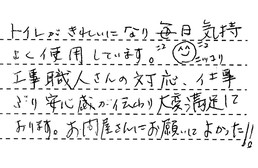 トイレがきれいになり毎日気持
よく使用しています。ニコ ニコ ニッコリ
工事職人さんの対応、仕事
ぶり安心感が伝わり大変満足して
おります。お問屋さんにお願いしてよかった!!